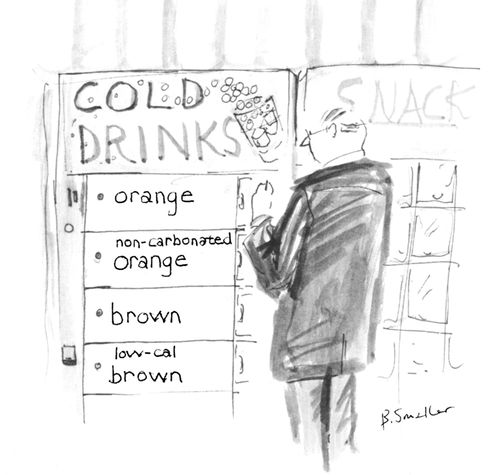 COLD
DRINKS
SNACK
orange
non-carbonated
orange
brown
low-cal
brown
B. Smaller